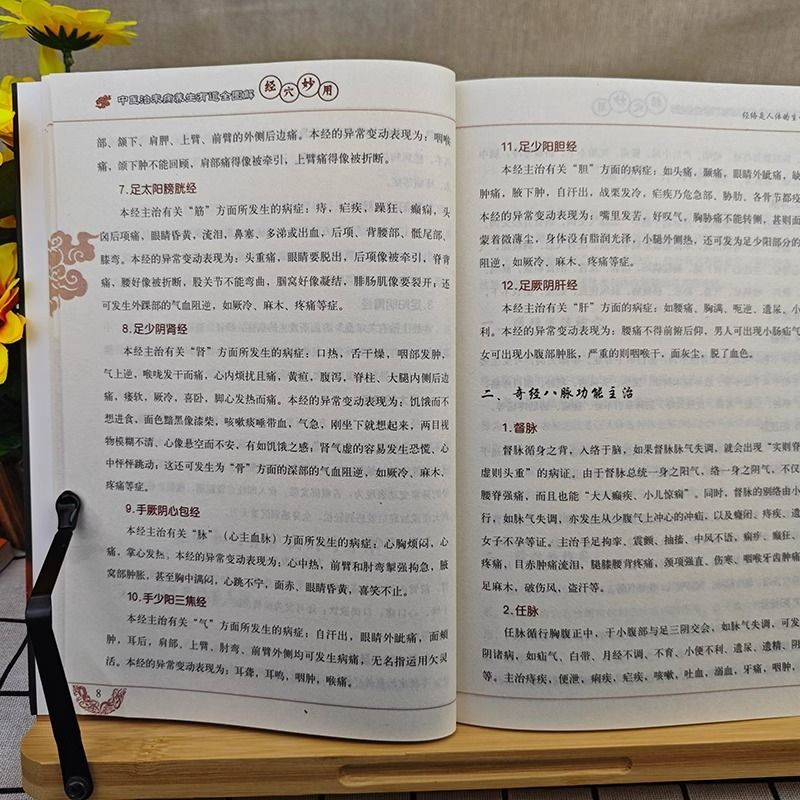 中医治未病养生有道全图解 经穴妙用
部、颌下、肩胛、上臂、前臂的外侧后边痛。本经的异常变动表现为：咽喉
痛，颌下肿不能回顾，肩部痛得像被牵引，上臂痛得像被折断。
7.足太阳膀胱经
本经主治有关“筋”方面所发生的病症：痔，疟疾，躁狂、癫痫，头
囟后项痛，眼睛昏黄，流泪，鼻塞、多涕或出血，后项、背腰部、骶尾部、
膝弯。本经的异常变动表现为：头重痛，眼睛要脱出，后项像被牵引、脊背
痛，腰好像被折断，股关节不能弯曲，腘窝好像凝结，腓肠肌像要裂开；还
可发生外踝部的气血阻逆，如厥冷、麻木、疼痛等症。
8.足少阴肾经
本经主治有关“肾”方面所发生的病症：口热，舌干燥，咽部发肿，
气上逆，喉咙发干而痛，心内烦扰且痛，黄疸，腹泻，脊柱、大腿内侧后边
痛，痿软，厥冷，喜卧，脚心发热而痛。本经的异常变动表现为：饥饿而不
想进食，面色黯黑像漆柴，咳嗽痰唾带血，气急，刚坐下就想起来，两目视
物模糊不清、心像悬空而不安，有如饥饿之感；肾气虚的容易发生恐慌、心
中怦怦跳动；这还可发生为“骨”方面的深部的气血阻逆，如厥冷、麻木、
疼痛等症。
9.手厥阴心包经
本经主治有关“脉”（心主血脉）方面所发生的病症：心胸烦闷，心
痛，掌心发热。本经的异常变动表现为：心中热，前臂和肘弯掣强拘急，腋
窝部肿胀，甚至胸中满闷，心跳不宁，面赤、眼睛昏黄，喜笑不止。
10.手少阳三焦经
本经主治有关“气”方面所发生的病症：自汗出，眼睛外眦痛，面颊
肿，耳后，肩部、上臂、肘弯、前臂外侧均可发生病痛，无名指运用欠灵
活。本经的异常变动表现为：耳聋，耳鸣，咽肿，喉痛。
8
经络是人体的生
11.足少阳胆经
本经主治有关“胆”方面的病症：如头痛，颞痛，眼睛外眦痛，缺
肿痛，腋下肿，自汗出，战栗发冷，疟疾乃危急部、胁肋、各骨节都疫
本经的异常变动表现为：嘴里发苦，好叹气，胸胁痛不能转侧，甚则面
蒙着微薄尘，身体没有脂润光泽，小腿外侧热，还可发为足少阳部分的
阻逆，如厥冷、麻木、疼痛等症。
12.足厥阴肝经
本经主治有关“肝”方面的病症：如腰痛、胸满、呃逆、遗尿、小
利。本经的异常变动表现为：腰痛不得前俯后仰，男人可出现小肠疝气
女可出现小腹部肿胀，严重的则咽喉干，面灰尘，脱了血色。
二、奇经八脉功能主治
1.督脉
督脉循身之背，入络于脑，如果督脉脉气失调，就会出现“实则脊
虚则头重”的病证。由于督脉总统一身之阳气，络一身之阴气，不仅
腰脊强痛，而且也能“大人癫疾、小儿惊痫”。同时，督脉的别络由小
行，如脉气失调，亦发生从少腹气上冲心的冲疝，以及癃闭、痔疾、遗
女子不孕等证。主治手足拘挛、震颤、抽搐、中风不语、痫疾、癫狂、
疼痛，目赤肿痛流泪，腿膝腰背疼痛，颈项强直、伤寒、咽喉牙齿肿痛
足麻木，破伤风，盗汗等。
2.任脉
任脉循行胸腹正中，于小腹部与足三阴交会，如脉气失调，可发
阴诸病，如疝气、白带、月经不调、不育、小便不利、遗尿、遗精、阴
等。主治痔疾、便泄、痢疾、疟疾、咳嗽，吐血、溺血，牙痛，咽肿，